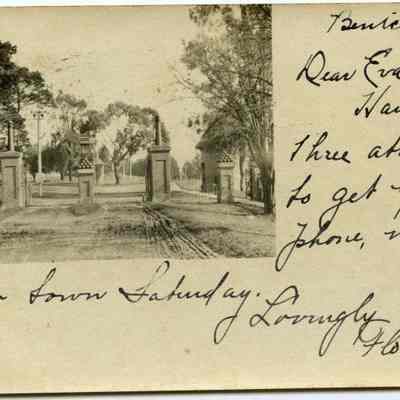 Dear Eva
Three
to get
phone,
town Saturday.
Lovingly
Flo